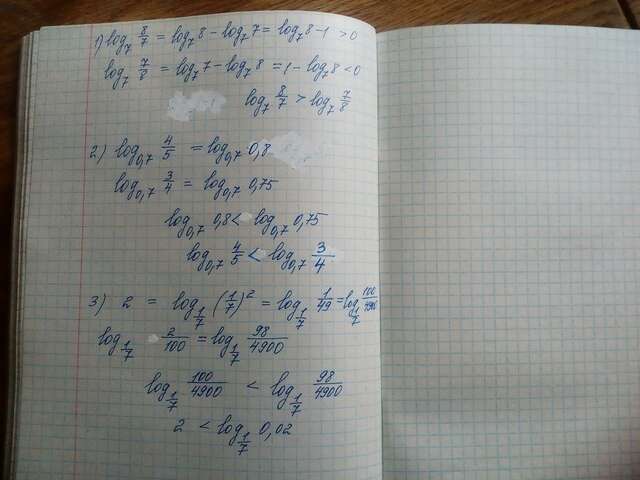 1) log₇ 8/7 = log₇ 8 − log₇ 7 = log₇ 8 − 1 > 0
log₇ 7/8 = log₇ 7 − log₇ 8 = 1 − log₇ 8 < 0
log₇ 8/7 > log₇ 7/8
2) log₀,₇ 4/5 = log₀,₇ 0,8
log₀,₇ 3/4 = log₀,₇ 0,75
log₀,₇ 0,8 < log₀,₇ 0,75
log₀,₇ 4/5 < log₀,₇ 3/4
3) 2 = log_{1/7} (1/7)² = log_{1/7} 1/49 = log_{1/7} 100/4900
log_{1/7} 2/100 = log_{1/7} 98/4900
log_{1/7} 100/4900 < log_{1/7} 98/4900
2 < log_{1/7} 0,02